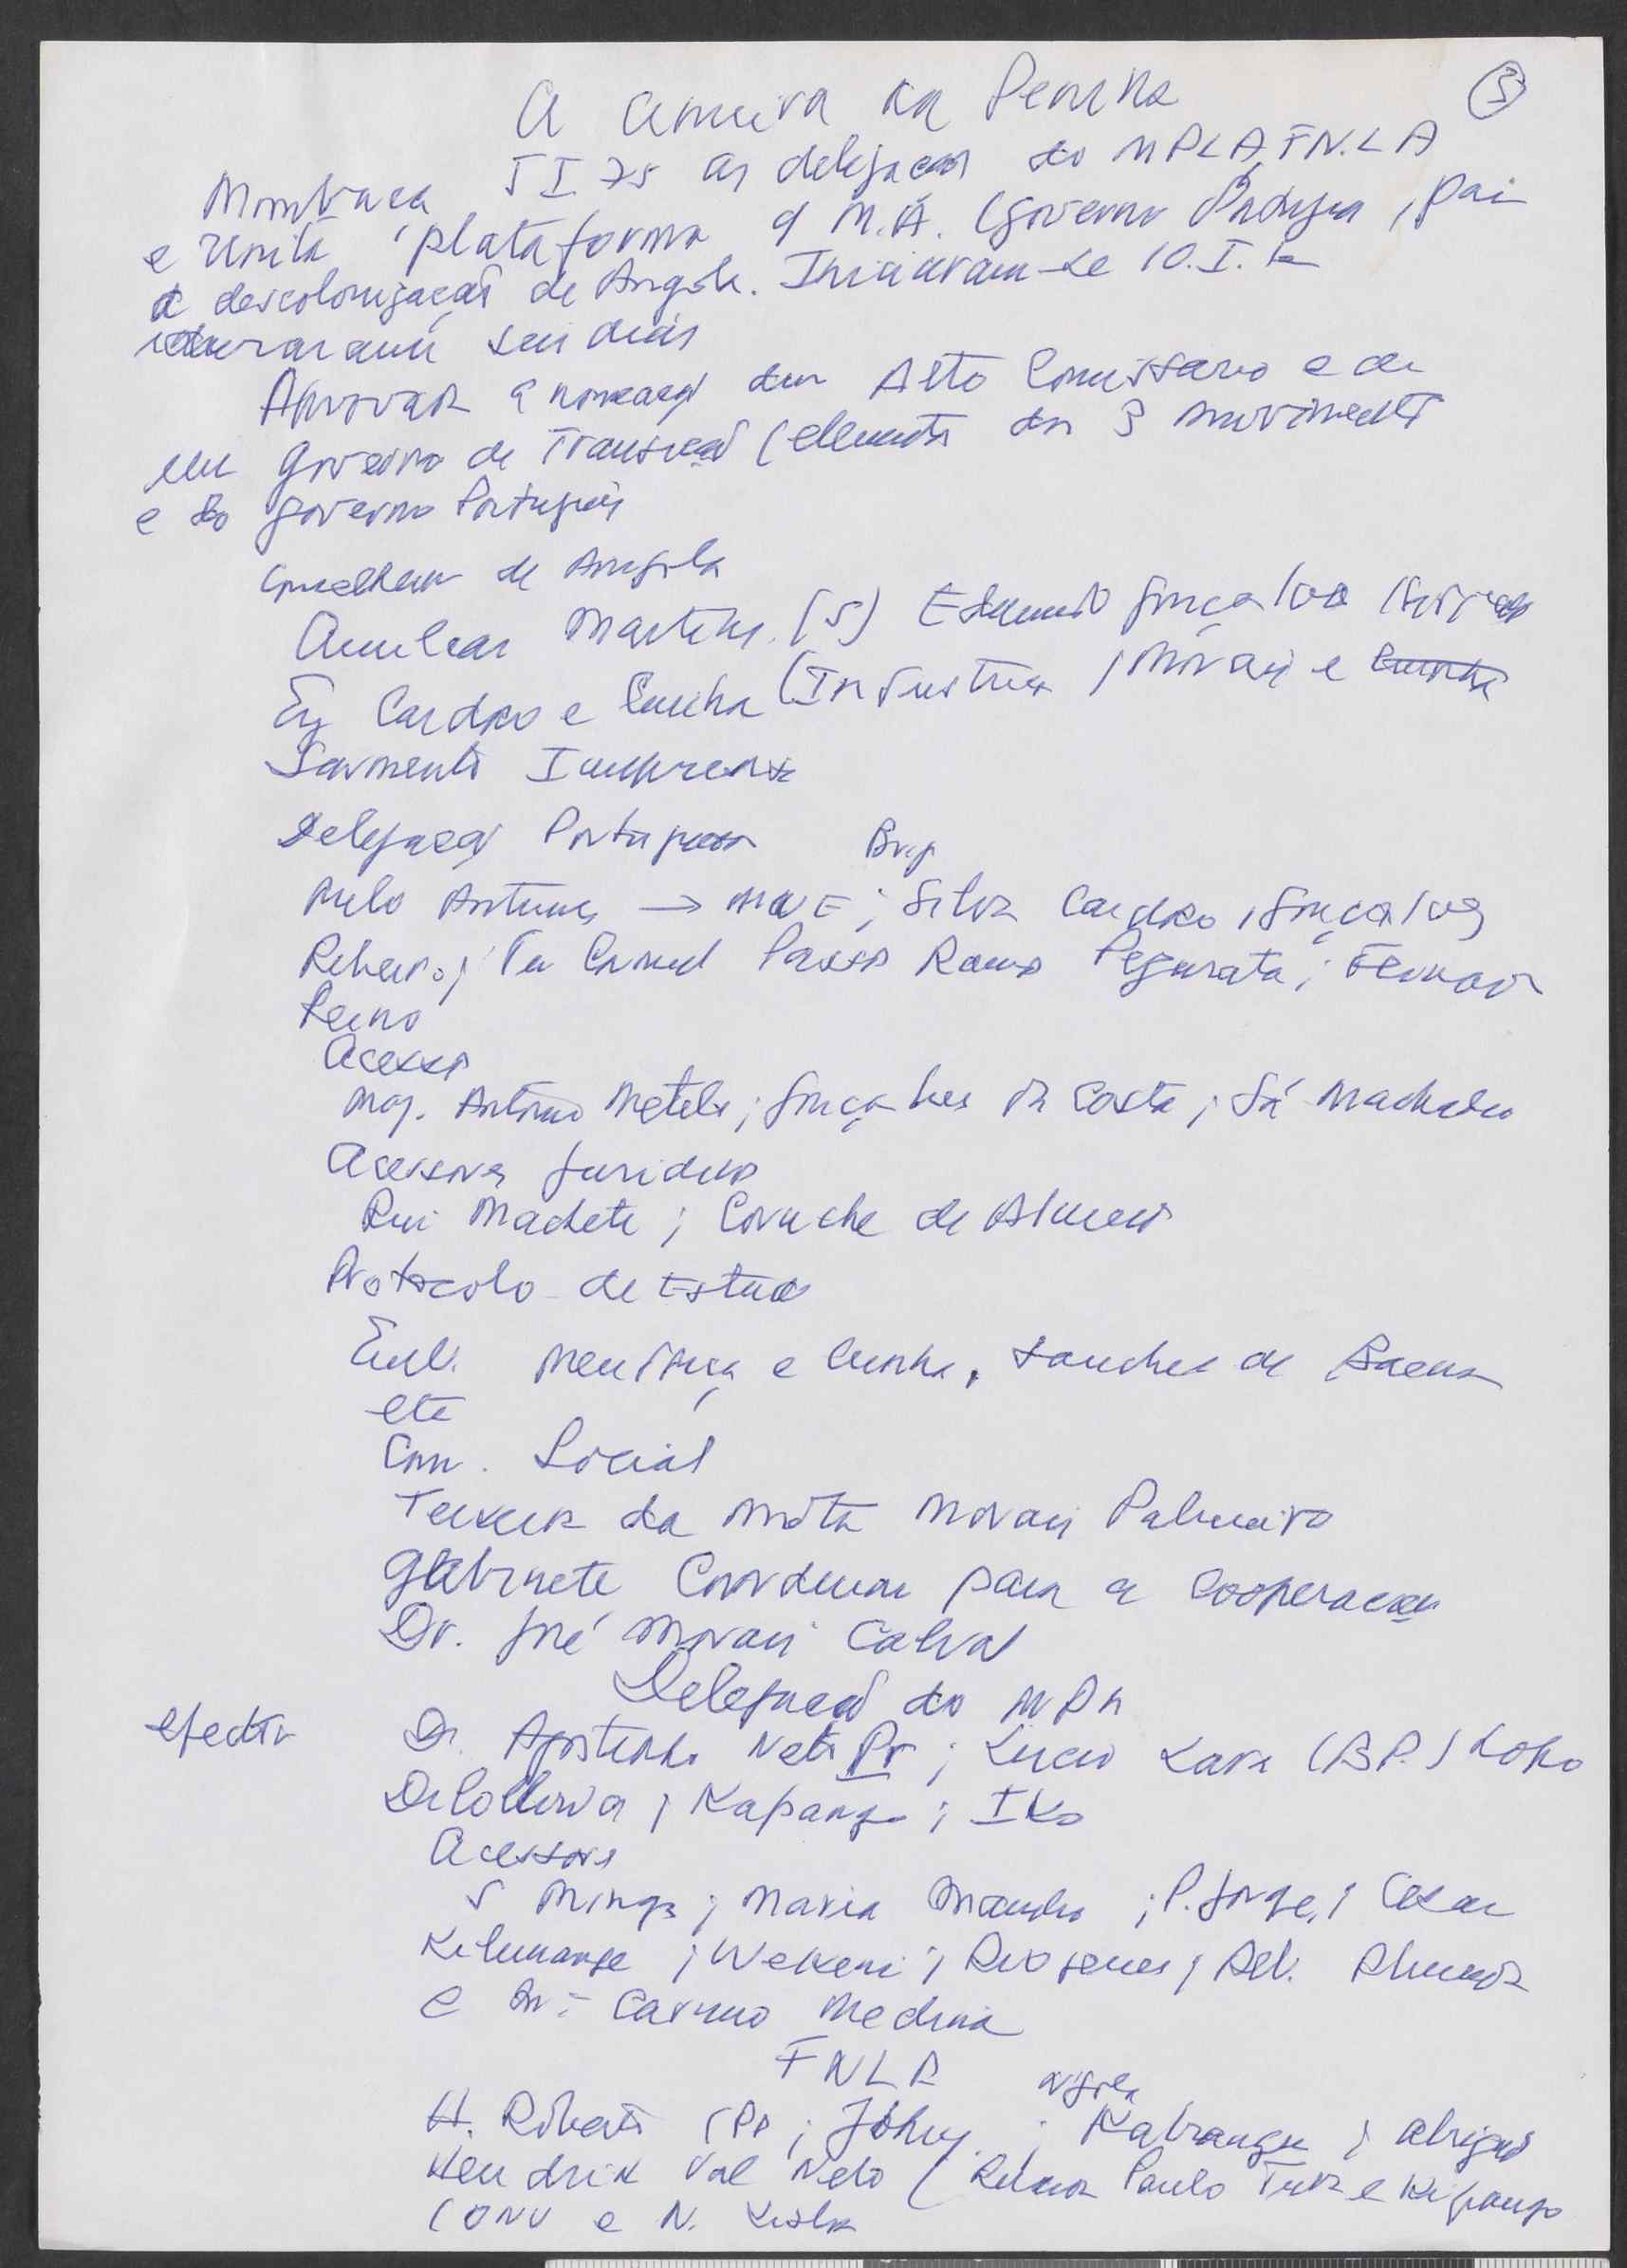 A Cimeira da Penina
3
Mombaça 5 I 75 as delegações do MPLA, FN.L A
e Unita, plataforma c/ M.A. (Governo Português, pai
a descolonização de Angola. Iniciaram-se 10. I.
duraram seis dias
Aprovar a nomeação dum Alto Comissário e de
um Governo de Transição (elementos dos 3 movimentos
e do governo Português
de Angola
Amilcar Martins (5) Edmundo Gonçalves
Eng Cardoso e Cunha (Industria, Morais e Cunha
Sarmento Imprensa
Delegação Portuguesa Brig
Melo Antunes → MNE; Silva Cardoso, Gonçalves
Ribeiro; Ten Coronel Passos Ramos Pezarata; Fernando
Reino
Acessor
Maj. António Metelo; Gonçalves da Costa; Sá Machado
Acessores Juridicos
Rui Machete; Coruche de Almeida
Protocolo de Estado
Emb. Mendonça e Cunha, Sanches de Baena
etc
Com. Social
Teixeira da Mota Morais Palmeiro
Gabinete Coordenador para a Cooperação
Dr. José Morais Cabral
Delegação do MPA
efectivo Dr. Agostinho Neto Pr; Lucio Lara (B.P.) Lopo
Do Nascimento; Kapango; Iko
Acessores
S Mingas; Maria Mambo; P. Jorge; Cesar
Kilumange; Wekeni; Diogenes; Adv. Almeida
e Dr. Carmo Medina
FNLA
H. Roberto (Pr; Johny; Kabangu; Abrigada
angola
Hendrik Val Neto ( Paulo Tuba e Kipango
(ONU e N.